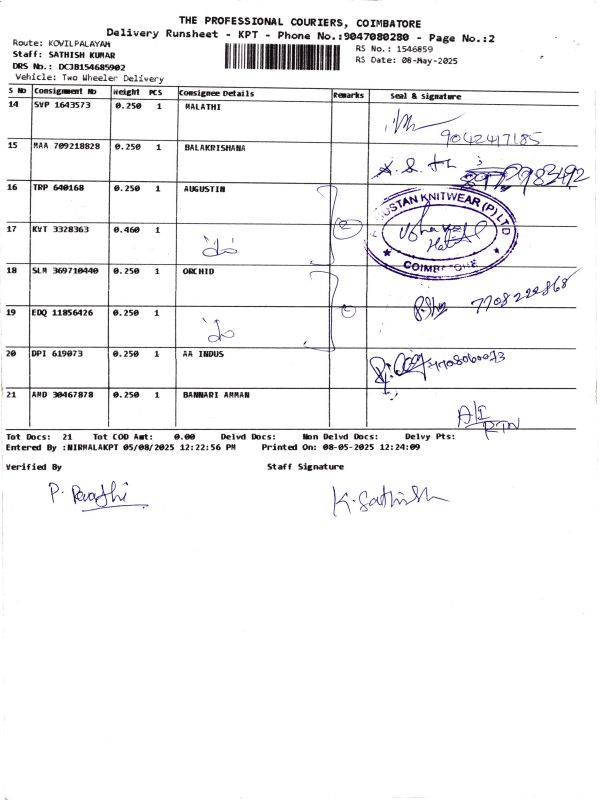 THE PROFESSIONAL COURIERS, COIMBATORE
Delivery Runsheet - KPT - Phone No.:9047080280 - Page No.:2
Route: KOVILPALAYAM
Staff: SATHISH KUMAR
DRS No.: DCJB154685902
Vehicle: Two Wheeler Delivery
RS No.: 1546859
RS Date: 08-May-2025
S No Consignment No Weight PCS Consignee Details Remarks Seal & Signature
14 SVP 1643573 0.250 1 MALATHI
9042417185
15 MAA 709218828 0.250 1 BALAKRISHANA
16 TRP 640168 0.250 1 AUGUSTIN
KNITWEAR (P) LTD
COIMBATORE
17 KVT 3328363 0.460 1
18 SLM 369710440 0.250 1 ORCHID
7708222868
19 EDQ 11856426 0.250 1
20 DPI 619073 0.250 1 AA INDUS
21 AMD 30467878 0.250 1 BANNARI AMMAN
A/I
RTN
Tot Docs: 21 Tot COD Amt: 0.00 Delvd Docs: Non Delvd Docs: Delvy Pts:
Entered By :NIRMALAKPT 05/08/2025 12:22:56 PM Printed On: 08-05-2025 12:24:09
Verified By Staff Signature
K. Sathish